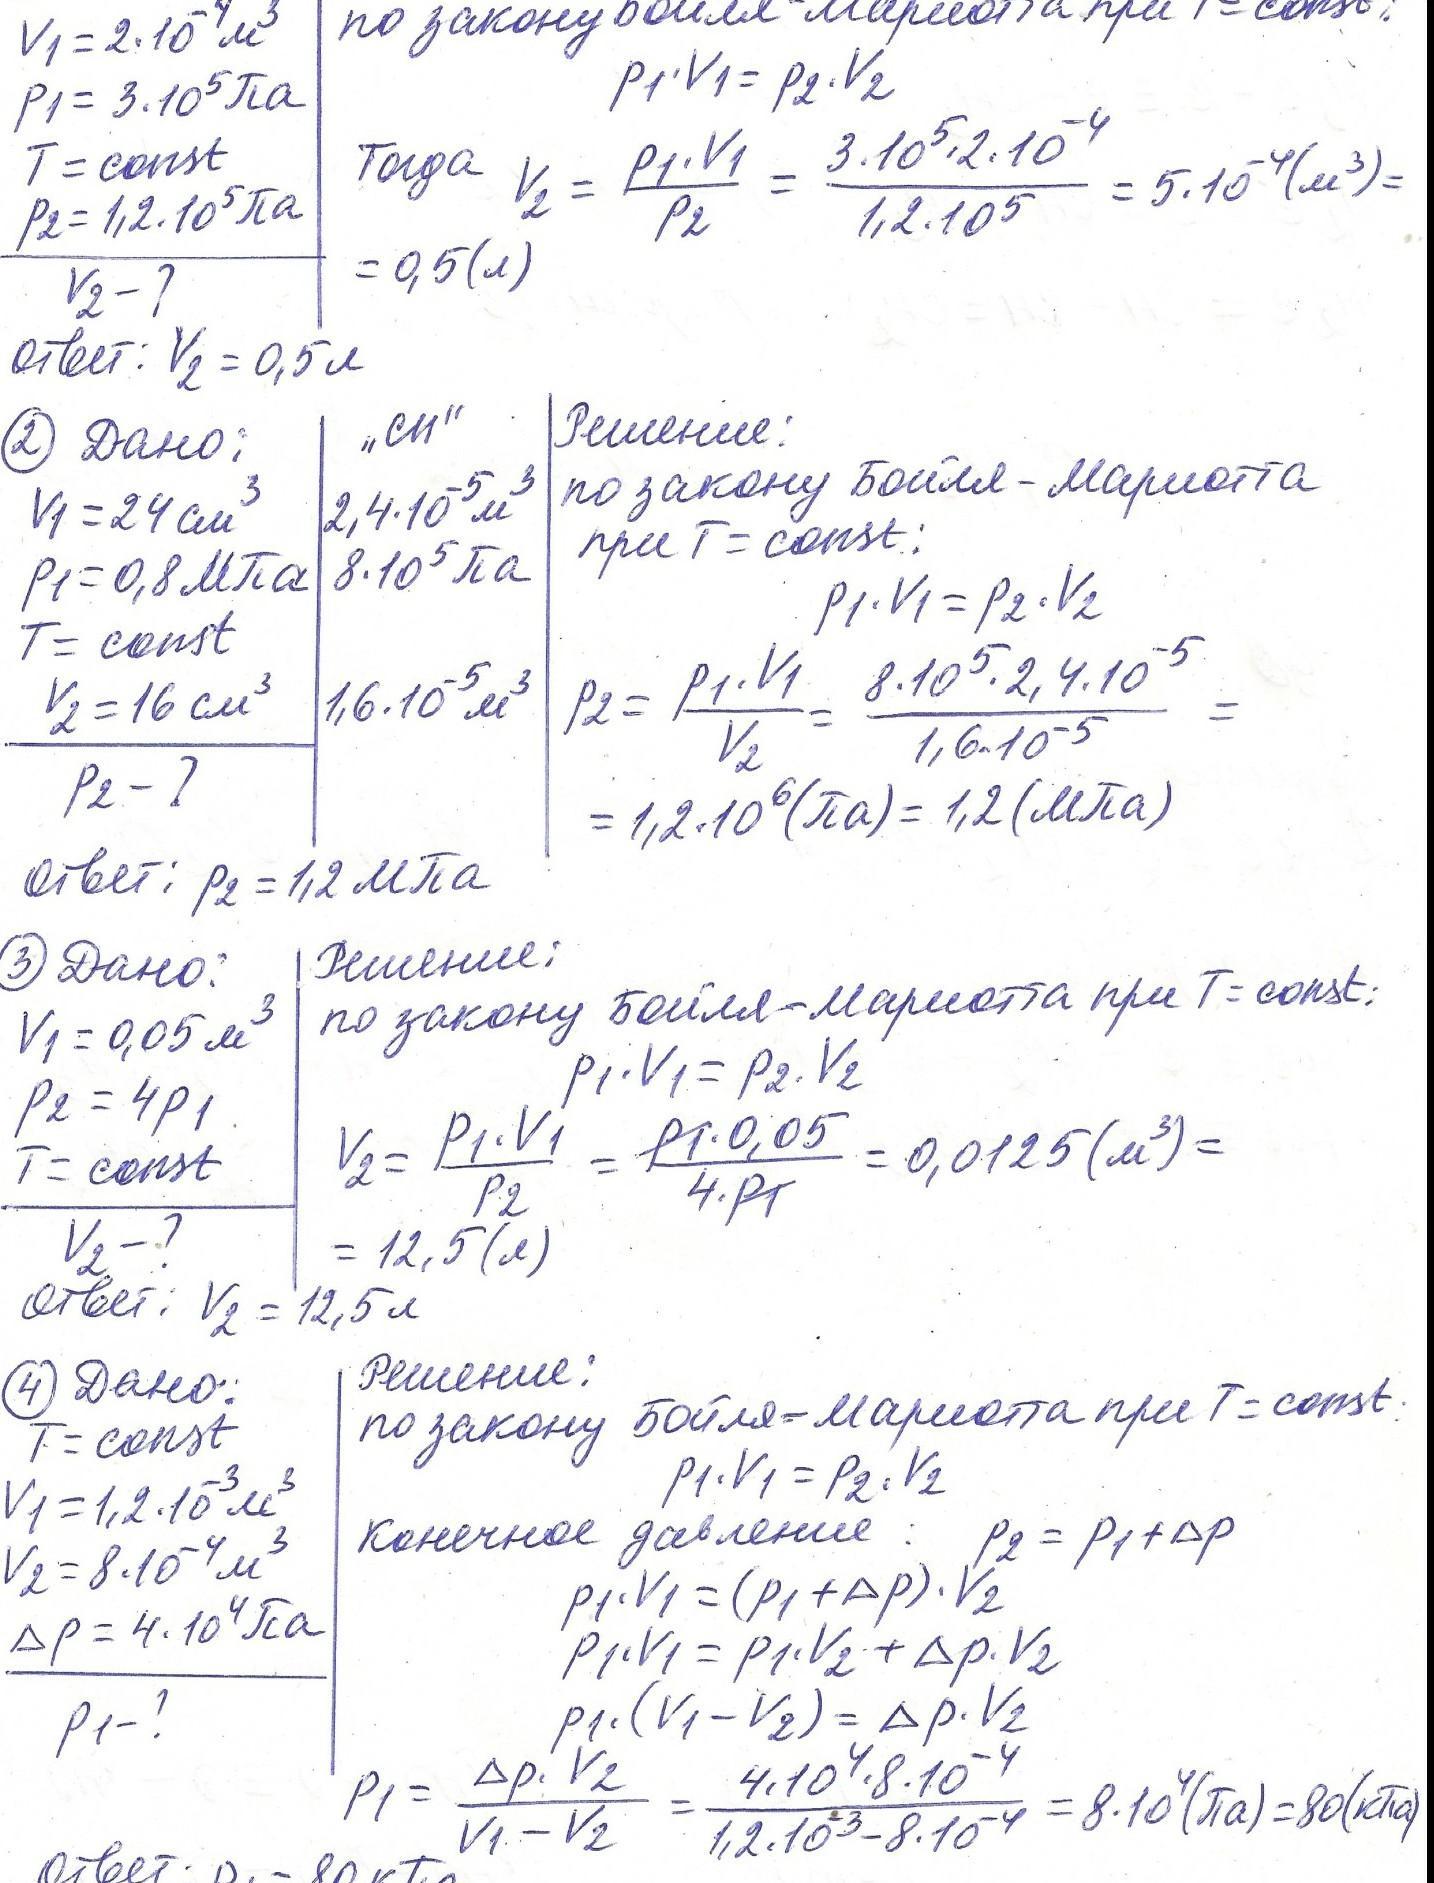 V₁ = 2·10⁻⁴ м³
по закону Бойля-Мариотта при T = const:
p₁·V₁ = p₂·V₂
p₁ = 3·10⁵ Па
T = const
p₂ = 1,2·10⁵ Па
V₂ - ?
Тогда V₂ = p₁·V₁ / p₂ = 3·10⁵·2·10⁻⁴ / 1,2·10⁵ = 5·10⁻⁴ (м³) =
= 0,5 (л)
Ответ: V₂ = 0,5 л
② Дано:
V₁ = 24 см³
p₁ = 0,8 МПа
T = const
V₂ = 16 см³
p₂ - ?
„СИ"
2,4·10⁻⁵ м³
8·10⁵ Па
1,6·10⁻⁵ м³
Решение:
по закону Бойля-Мариотта
при T = const:
p₁·V₁ = p₂·V₂
p₂ = p₁·V₁ / V₂ = 8·10⁵·2,4·10⁻⁵ / 1,6·10⁻⁵ =
= 1,2·10⁶ (Па) = 1,2 (МПа)
Ответ: p₂ = 1,2 МПа
③ Дано:
V₁ = 0,05 м³
p₂ = 4p₁
T = const
V₂ - ?
Решение:
по закону Бойля-Мариотта при T = const:
p₁·V₁ = p₂·V₂
V₂ = p₁·V₁ / p₂ = p₁·0,05 / 4·p₁ = 0,0125 (м³) =
= 12,5 (л)
Ответ: V₂ = 12,5 л
④ Дано:
T = const
V₁ = 1,2·10⁻³ м³
V₂ = 8·10⁻⁴ м³
Δp = 4·10⁴ Па
p₁ - ?
Решение:
по закону Бойля-Мариотта при T = const:
p₁·V₁ = p₂·V₂
Конечное давление: p₂ = p₁ + Δp
p₁·V₁ = (p₁ + Δp)·V₂
p₁·V₁ = p₁·V₂ + Δp·V₂
p₁·(V₁ - V₂) = Δp·V₂
p₁ = Δp·V₂ / V₁ - V₂ = 4·10⁴·8·10⁻⁴ / 1,2·10⁻³ - 8·10⁻⁴ = 8·10⁴ (Па) = 80 (кПа)
Ответ: p₁ = 80 кПа